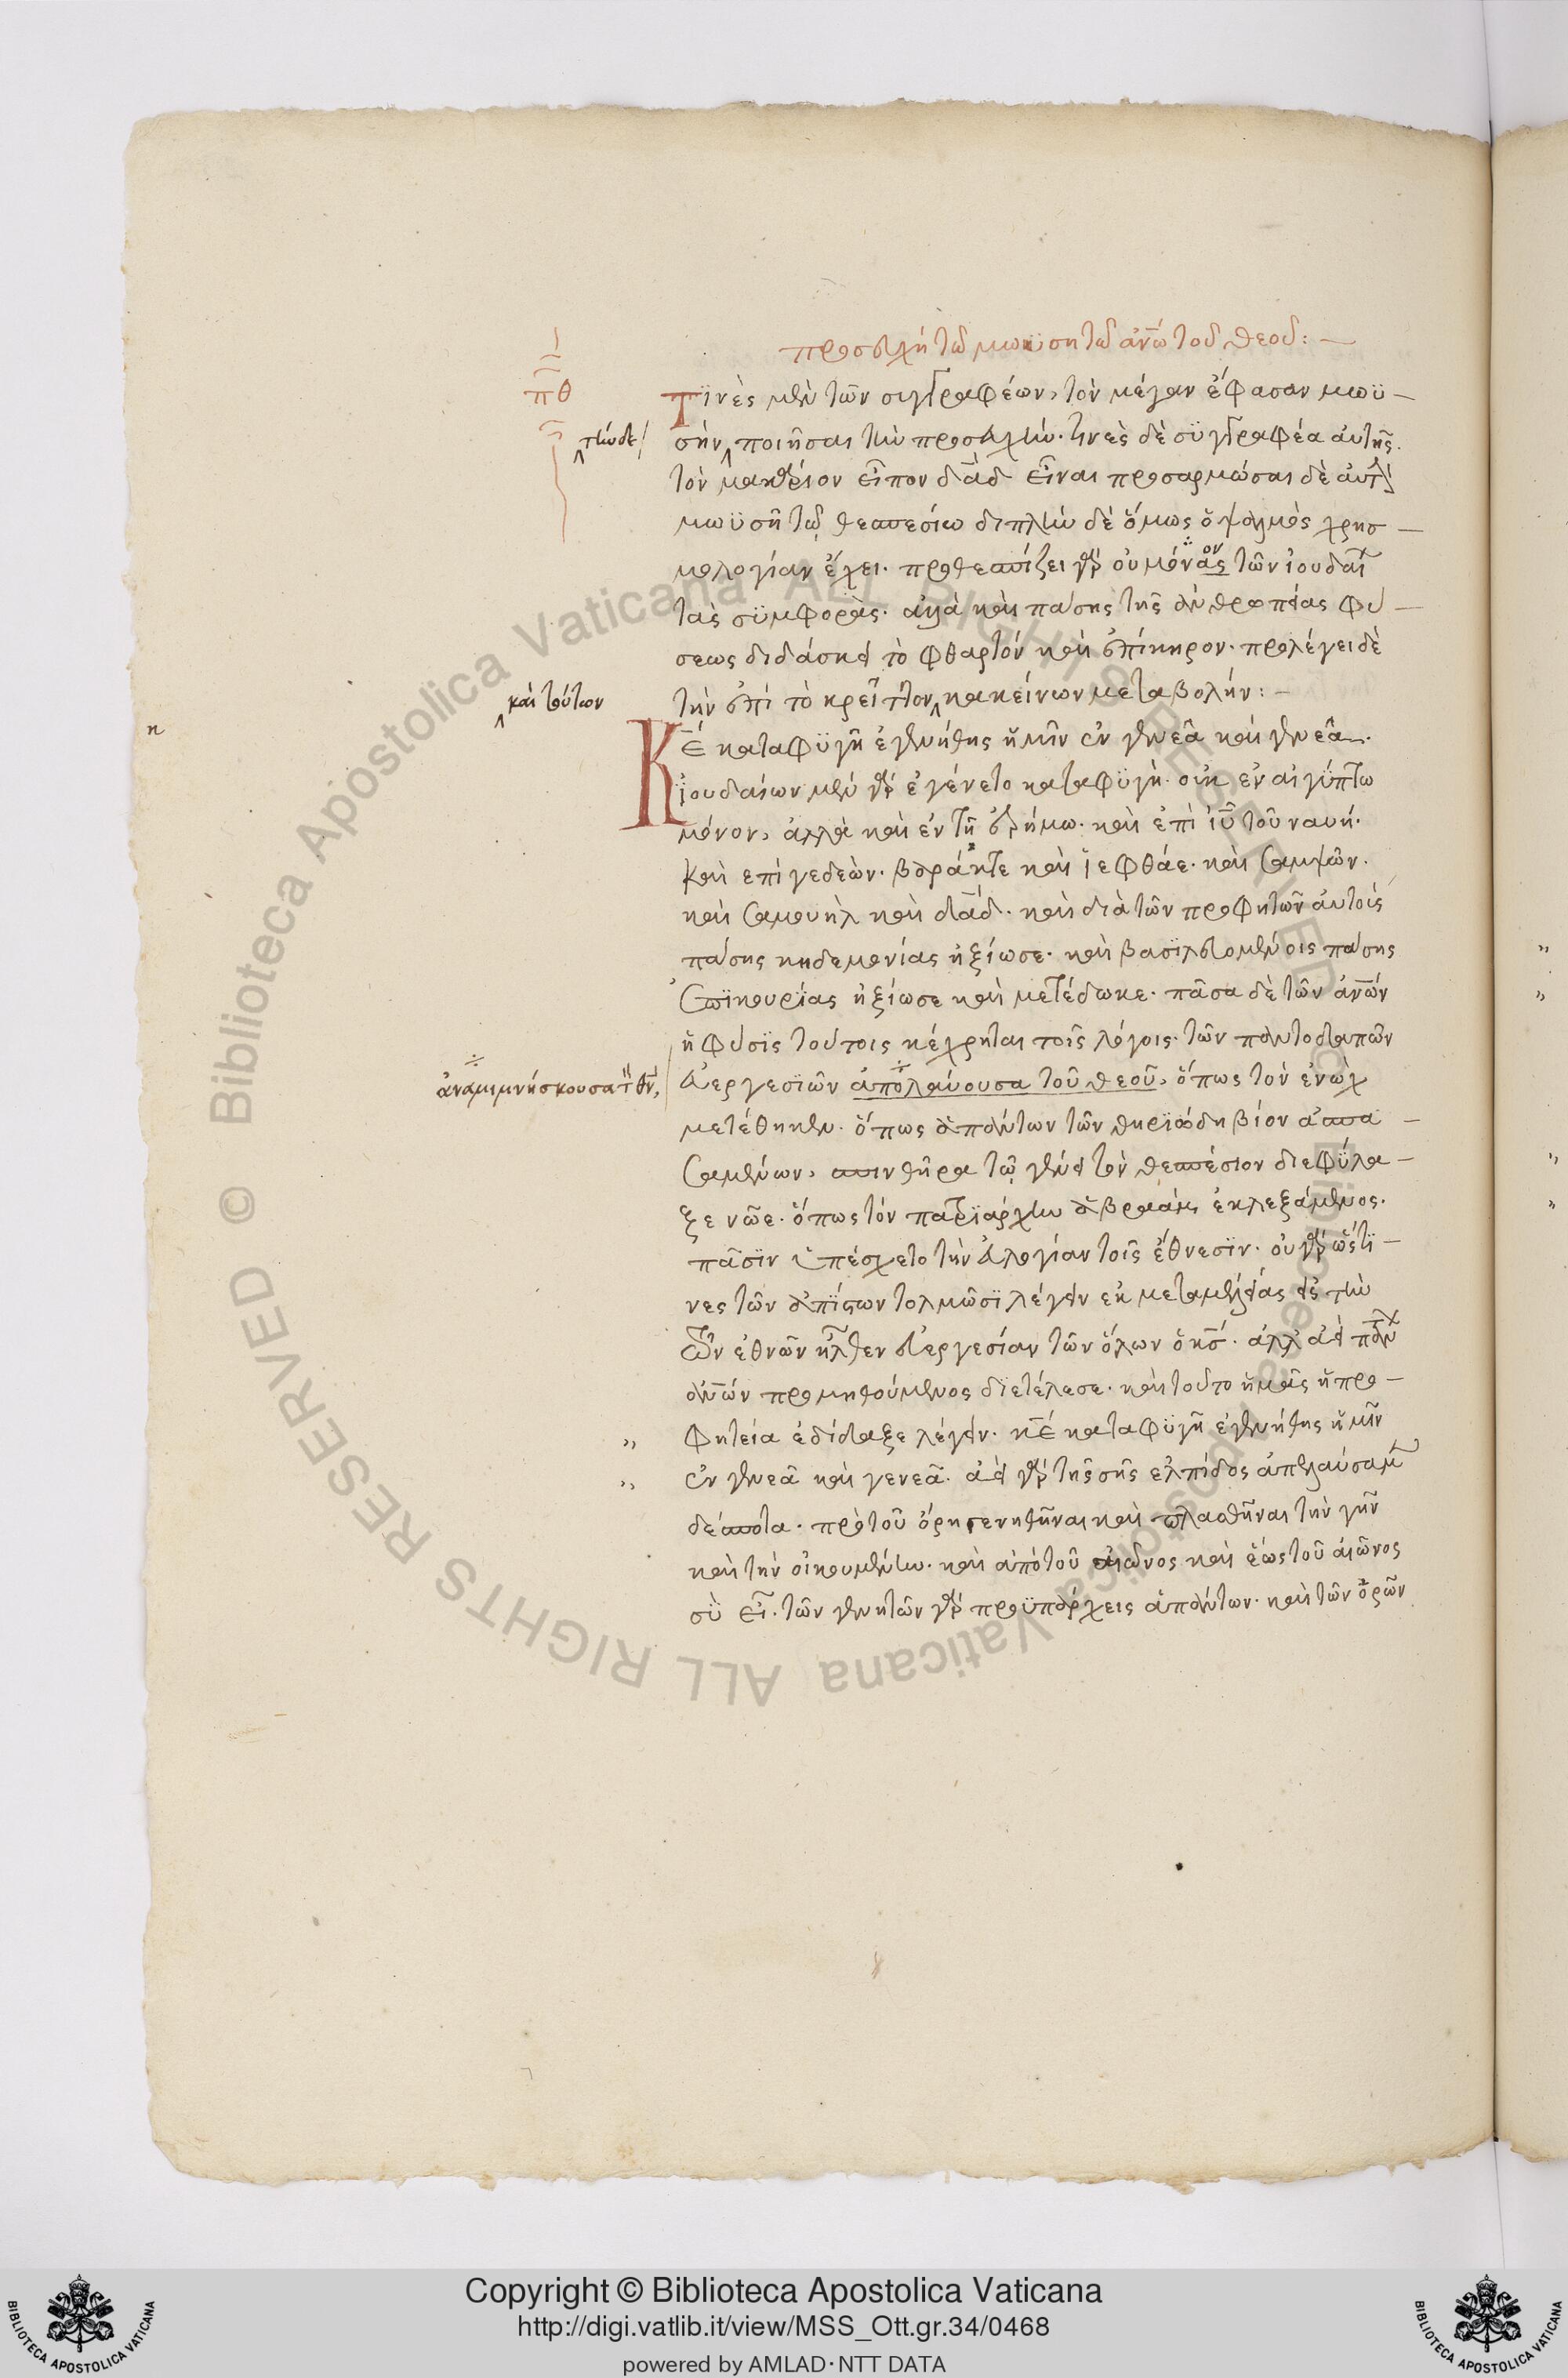 προσευχὴ τοῦ μωϋσῆ τοῦ ἀνου τοῦ θεοῦ: —
πθ
Τϊνὲς μὲν τῶν συγγραφέων, τὸν μέγαν ἔφασαν μωϋ —
τήνδε
σὴν ποιῆσαι τὴν προσευχήν. τινὲς δὲ συγγραφέα αὐτῆς.
τὸν μακάριον εἶπον δαδ εἶναι προσαρμώσαι δὲ αὐτὴν
μωϋσῆ τῷ θεσπεσίω διπλὴν δὲ ὅμως ὁ ψαλμὸς χρησ —
μολογίαν ἔχει. προθεσπίζει γὰρ οὐ μόνας ον τῶν ἰουδαί
τὰς συμφορὰς. ἀλλὰ καὶ πάσης τῆς ἀνθρωπείας φύ —
σεως διδάσκει τὸ φθαρτόν καὶ ἐπίκηρον. προλέγει δὲ
καὶ τούτων
τὴν ἐπὶ τὸ κρεῖττον κακείνων μεταβολήν: —
κ
Κε καταφϋγὴ ἐγενήθης ἡμῖν ἐν γενεᾶ καὶ γενεᾶ.
ἰουδαίων μὲν γὰρ ἐγένετο καταφϋγὴ. οὐκ ἐν αἰγύπτω
μόνον, ἀλλὰ καὶ ἐν τῇ ἐρήμω. καὶ ἐπὶ ιυ τοῦ ναυή.
καὶ ἐπὶ γεδεὼν. βαράκτε καὶ ἰεφθάε. καὶ σαμψῶν.
καὶ σαμουὴλ καὶ δαδ. καὶ διὰ τῶν προφητῶν αὐτοῖς
πάσης κηδεμονίας ἠξίωσε. καὶ βασιλευομένοις πάσης
ἐπϊκουρίας ἠξίωσε καὶ μετέδωκε. πᾶσα δὲ τῶν ανων
ἡ φύσϊς τούτοις κέχρηται τοῖς λόγοις. τῶν παντοδαπῶν
ἀναμιμνήσκουσα τ θν,
εὐεργεσϊῶν ἀπολαύουσα τοῦ θεοῦ, ὅπως τὸν ἐνὼχ
μετέθηκεν. ὅπως ἁπάντων τῶν θηριώδη βίον ἀσπα —
σαμένων, σπινθῆρα τῷ γένει τὸν θεσπέσιον διεφύλα —
ξε νῶε. ὅπως τὸν πατριάρχην ἀβραὰμ ἐκλεξάμενος.
πᾶσϊν ὑπέσχετο τὴν εὐλογίαν τοῖς ἔθνεσϊν. οὐ γὰρ ὥς τι —
νες τῶν ἀπίστων τολμῶσϊ λέγειν ἐκ μεταμελείας εἰς τὴν
τῶν ἐθνῶν ἦλθεν εὐεργεσίαν τῶν ὅλων ὁ κς. ἀλλ' ἀεὶ πάντων
ανων προμηθούμενος διετέλεσε. καὶ τοῦτο ἡμᾶς ἡ προ —
φητεία ἐδίδαξε λέγειν. κε καταφϋγὴ ἐγενήθης ἡμῖν
ἐν γενεᾶ καὶ γενεᾶ. ἀεὶ γὰρ τῆς σῆς ἐλπίδος ἀπελαύσαμεν
δέσποτα. πρὸ τοῦ ὄρη γενηθῆναι καὶ πλασθῆναι τὴν γῆν
καὶ τὴν οἰκουμένην. καὶ ἀπὸ τοῦ αἰῶνος καὶ ἕως τοῦ αἰῶνος
σὺ εἶ. τῶν γενητῶν γὰρ προϋπάρχεις ἁπάντων. καὶ τῶν ὀρῶν
Copyright © Biblioteca Apostolica Vaticana
http://digi.vatlib.it/view/MSS_Ott.gr.34/0468
powered by AMLAD·NTT DATA
BIBLIOTECA APOSTOLICA VATICANA
BIBLIOTECA APOSTOLICA VATICANA
Biblioteca Apostolica Vaticana ALL RIGHTS RESERVED ©